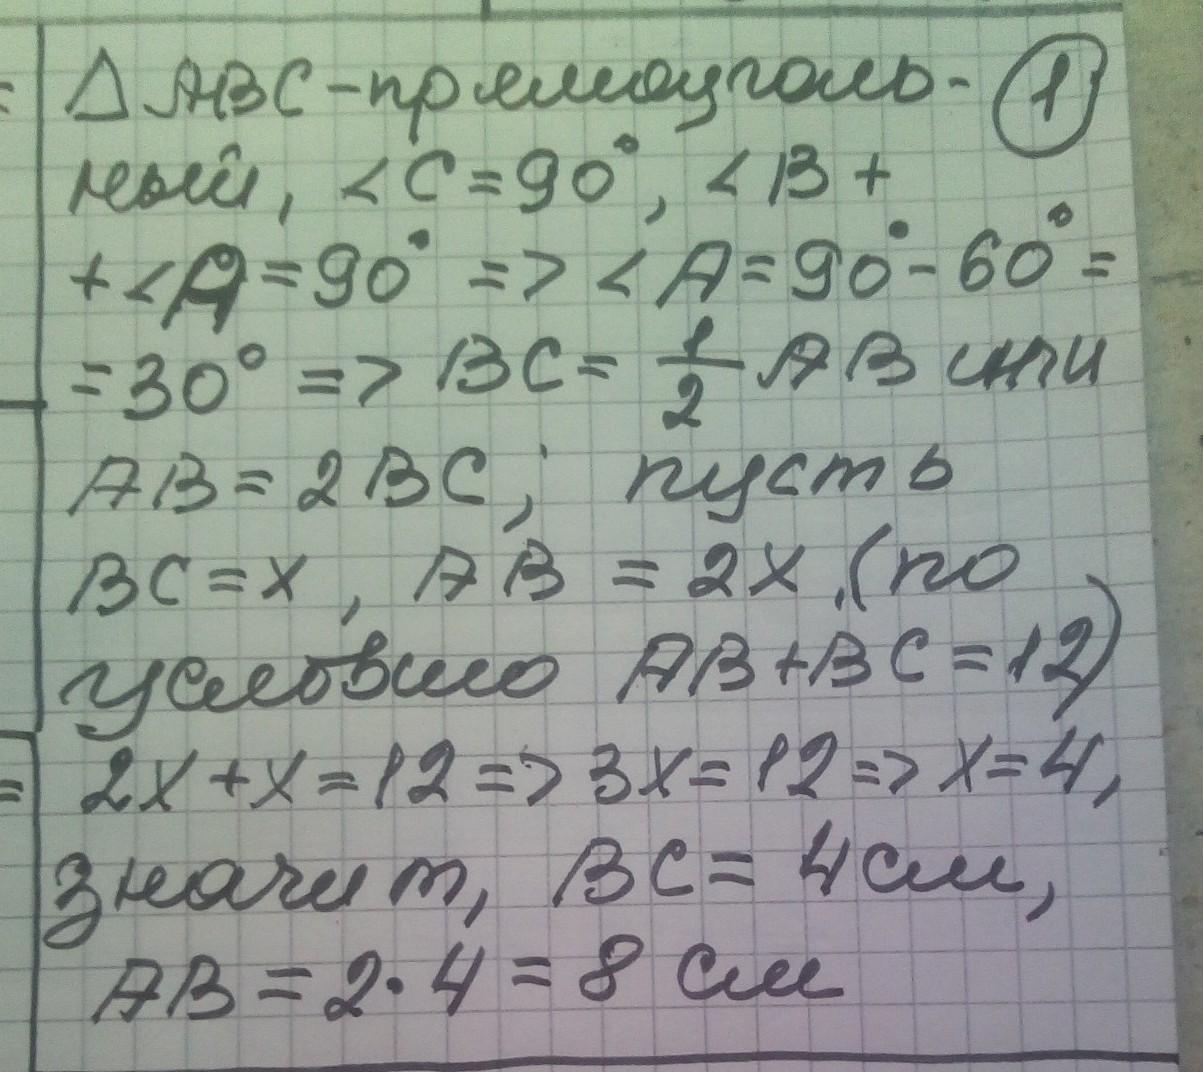 △ABC-прямоуголь- 1
ный, <C=90°, <B+
+<A=90° => <A=90°-60°=
=30° => BC=1/2 AB или
AB=2BC; пусть
BC=x, AB=2x,(по
условию AB+BC=12)
2x+x=12=>3x=12=>x=4,
значит, BC=4см,
AB=2·4=8 см